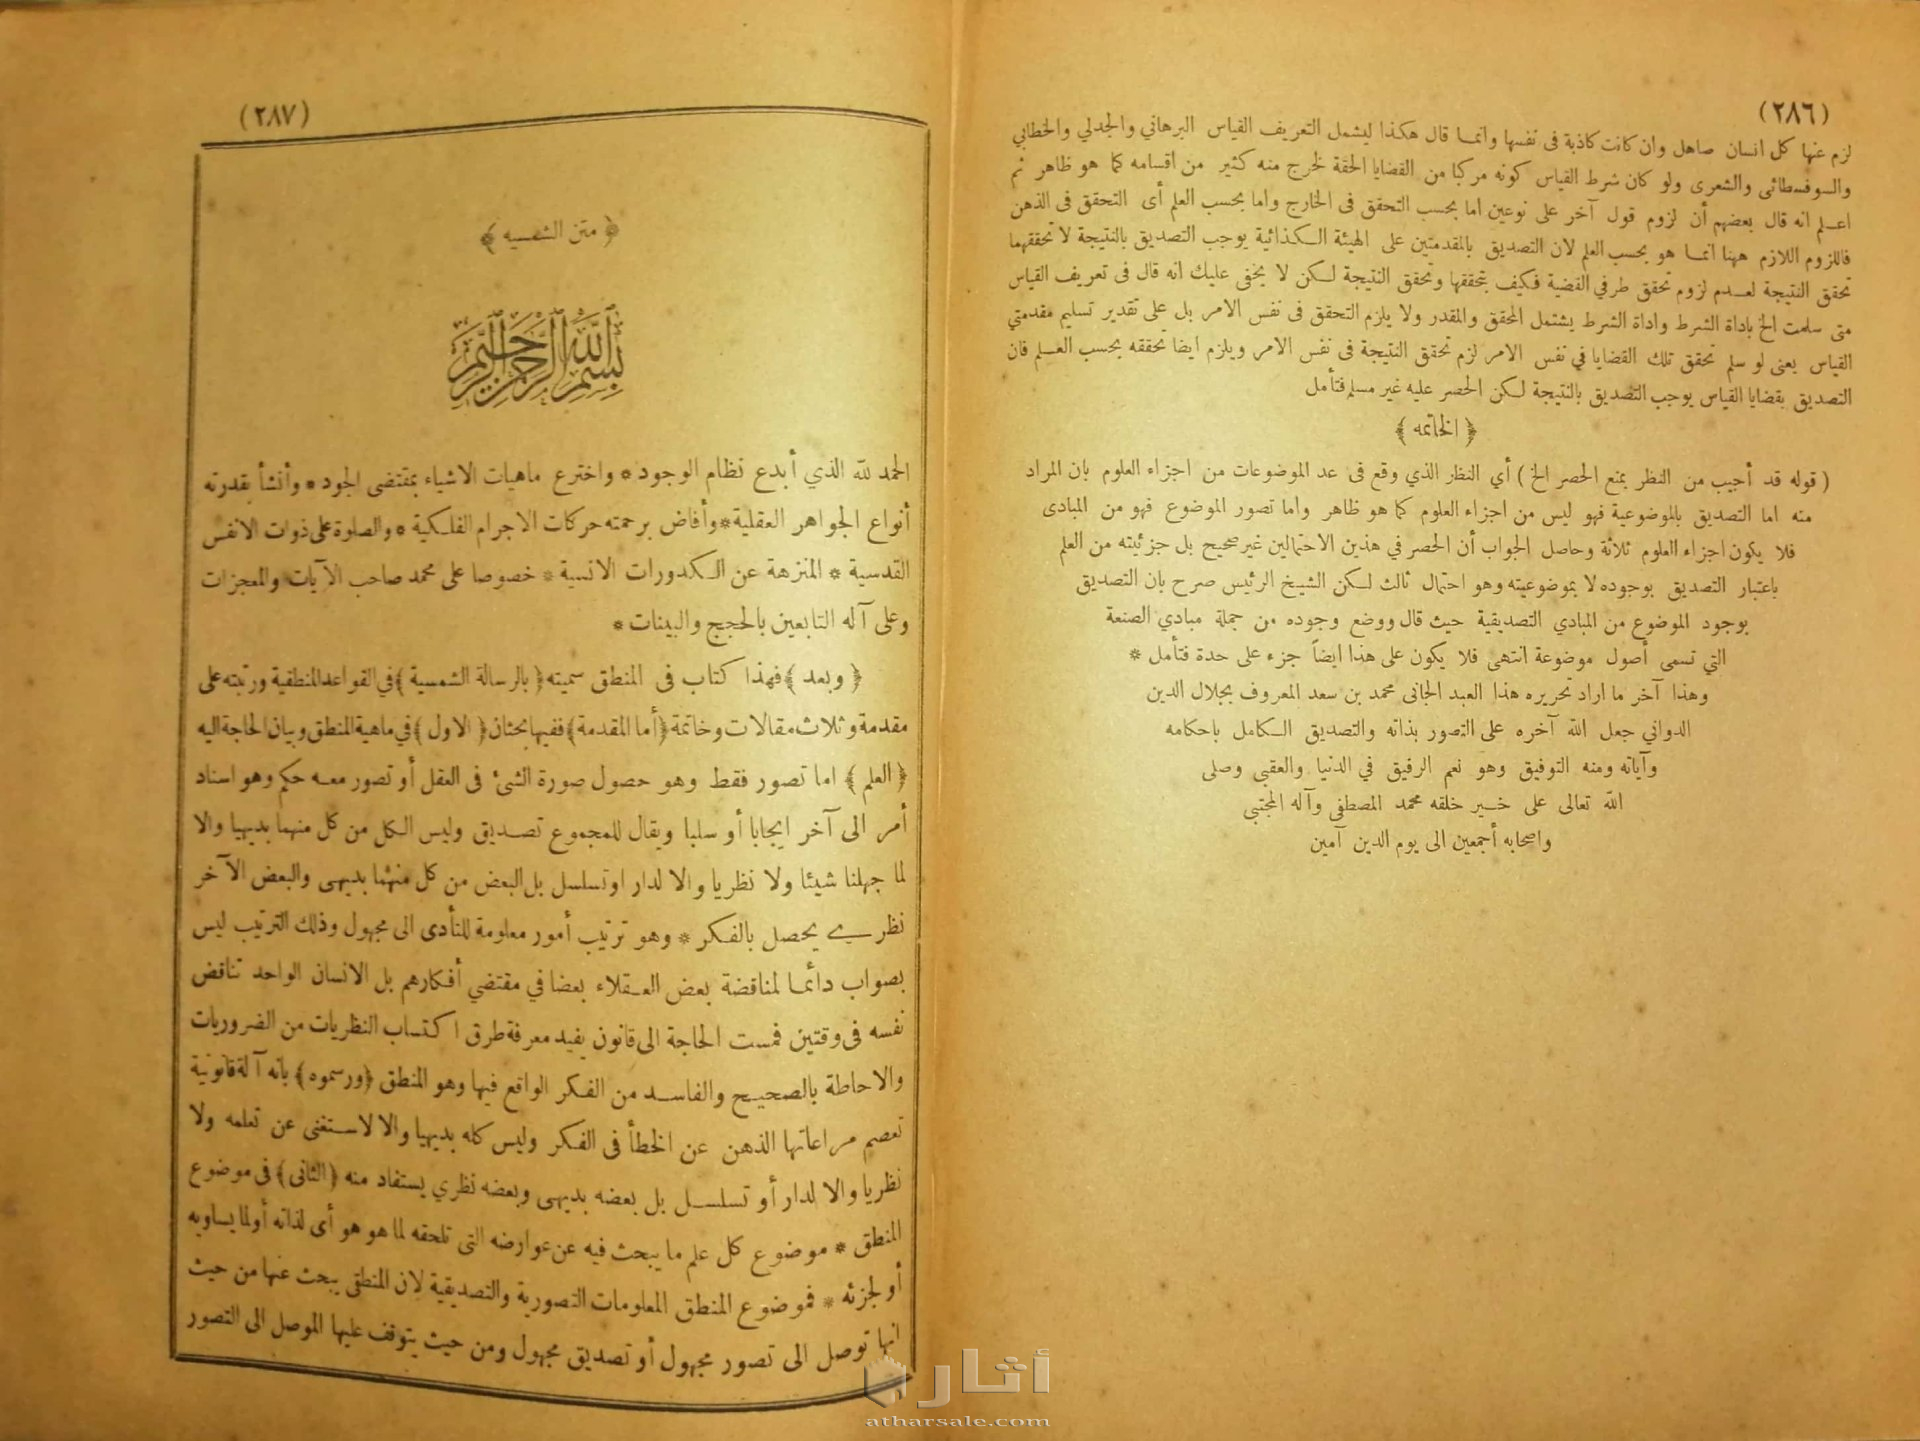 (٢٨٦)
لزم عنها كل انسان صاهل وان كانت كاذبة فى نفسها وانمـا قال هكذا ليشمل التعريف القياس البرهاني والجدلي والخطابي
والسوفسطائى والشعرى ولو كان شرط القياس كونه مركبا من القضايا الحقة لخرج منه كثير من اقسامه كما هو ظاهر ثم
اعـلم انه قال بعضهم أن لزوم قول آخر على نوعين اما بحسب التحقق فى الخارج واما بحسب العلم أى التحقق فى الذهن
فاللزوم اللازم ههنا انمـا هو بحسب العلم لان التصديق بالمقدمتين على الهيئة الـكذائية يوجب التصديق بالنتيجة لا تحققهما
تحقق النتيجة لعـدم لزوم تحقق طرفي القضية فكيف بتحققها وتحقق النتيجة لـكن لا يخفى عليك انه قال فى تعريف القياس
متى سلمت الخ باداة الشرط واداة الشرط يشتمل المحقق والمقدر ولا يلزم التحقق فى نفس الامر بل على تقدير تسليم مقدمتي
القياس يعنى لو سلم تحقق تلك القضايا في نفس الامر لزم تحقق النتيجة فى نفس الامر ويلزم ايضا تحققه بحسب العـلم فان
التصديق بقضايا القياس يوجب التصديق بالنتيجة لـكن الحصر عليه غير مسلم فتأمل
﴿ الخاتمه ﴾
( قوله قد أجيب من النظر يمنع الحصر الخ ) أي النظر الذي وقع فى عد الموضوعات من اجزاء العلوم بان المراد
منه اما التصديق بالموضوعية فهو ليس من اجزاء العلوم كما هو ظاهر واما تصور الموضوع فهو من المبادى
فلا يكون اجزاء العلوم ثلاثة وحاصل الجواب أن الحصر في هذين الاحتمالين غير صحيح بل جزئيته من العلم
باعتبار التصديق بوجوده لا بموضوعيته وهو احتمال ثالث لـكن الشيخ الرئيس صرح بان التصديق
بوجود الموضوع من المبادي التصديقية حيث قال ووضع وجوده من جملة مبادي الصنعة
التي تسمى أصول موضوعة انتهى فلا يكون على هذا ايضاً جزء على حدة فتأمل *
وهذا آخر ما اراد تحريره هذا العبد الجانى محمد بن سعد المعروف بجلال الدين
الدواني جعل الله آخره على التصور بذاته والتصديق الـكامل باحكامه
وآياته ومنه التوفيق وهو نعم الرفيق في الدنيا والعقبى وصلى
الله تعالى على خـير خلقه محمد المصطفى وآله المجتبى
واصحابه أجمعين الى يوم الدين آمين
(٢٨٧)
﴿ متن الشمسيه ﴾
بسم الله الرحمن الرحيم
الحمد لله الذي أبدع نظام الوجود * واخترع ماهيات الاشياء بمقتضى الجود * وأنشأ بقدرته
أنواع الجواهر العقلية * وأفاض برحمته حركات الاجرام الفلـكية * والصلوة على ذوات الانفس
القدسية * المنزهة عن الـكدورات الانسية * خصوصا على محمد صاحب الآيات والمعجزات
وعلى آله التابعين بالحجج والبينات *
﴿ وبعد ﴾ فهذا كتاب فى المنطق سميته ﴿ بالرسالة الشمسية ﴾ في القواعد المنطقية ورتبته على
مقدمة وثلاث مقالات وخاتمة ﴿ أما المقدمة ﴾ ففيها بحثان ﴿ الاول ﴾ في ماهية المنطق وبيان الحاجة اليه
﴿ العلم ﴾ اما تصور فقط وهو حصول صورة الشئ فى العقل أو تصور معـه حكم وهو اسناد
أمر الى آخر ايجابا أو سلبا ويقال للمجموع تصـديق وليس الكل من كل منهما بديهيا والا
لما جهلنا شيئا ولا نظريا والا لدار او تسلسل بل البعض من كل منهما بديهى والبعض الآخر
نظرى يحصل بالفـكر * وهو ترتيب أمور معلومة للتأدى الى مجهول وذلك الترتيب ليس
بصواب دائمـا لمناقضة بعض العـقلاء بعضا في مقتضي أفكارهم بل الانسان الواحد تناقض
نفسه فى وقتين فمست الحاجة الى قانون يفيد معرفة طرق اكتساب النظريات من الضروريات
والاحاطة بالصحيـح والفاسـد من الفـكر الواقع فيها وهو المنطق ﴿ ورسموه ﴾ بانه آلة قانونية
تعصم مراعاتها الذهن عن الخطأ فى الفـكر وليس كله بديهيا والا لاسـتغنى عن تعلمه ولا
نظريا والا لدار أو تسلسـل بل بعضه بديهى وبعضه نظري يستفاد منه ﴿ الثانى ﴾ فى موضوع
المنطق * موضوع كل علم ما يبحث فيه عن عوارضه التى تلحقه لما هو هو أى لذاته أو لما يساويه
أو لجزئه * فموضوع المنطق المعلومات التصورية والتصديقية لان المنطقى يبحث عنها من حيث
انها توصل الى تصور مجهول أو تصديق مجهول ومن حيث يتوقف عليها الموصل الى التصور
أثار
atharsale.com